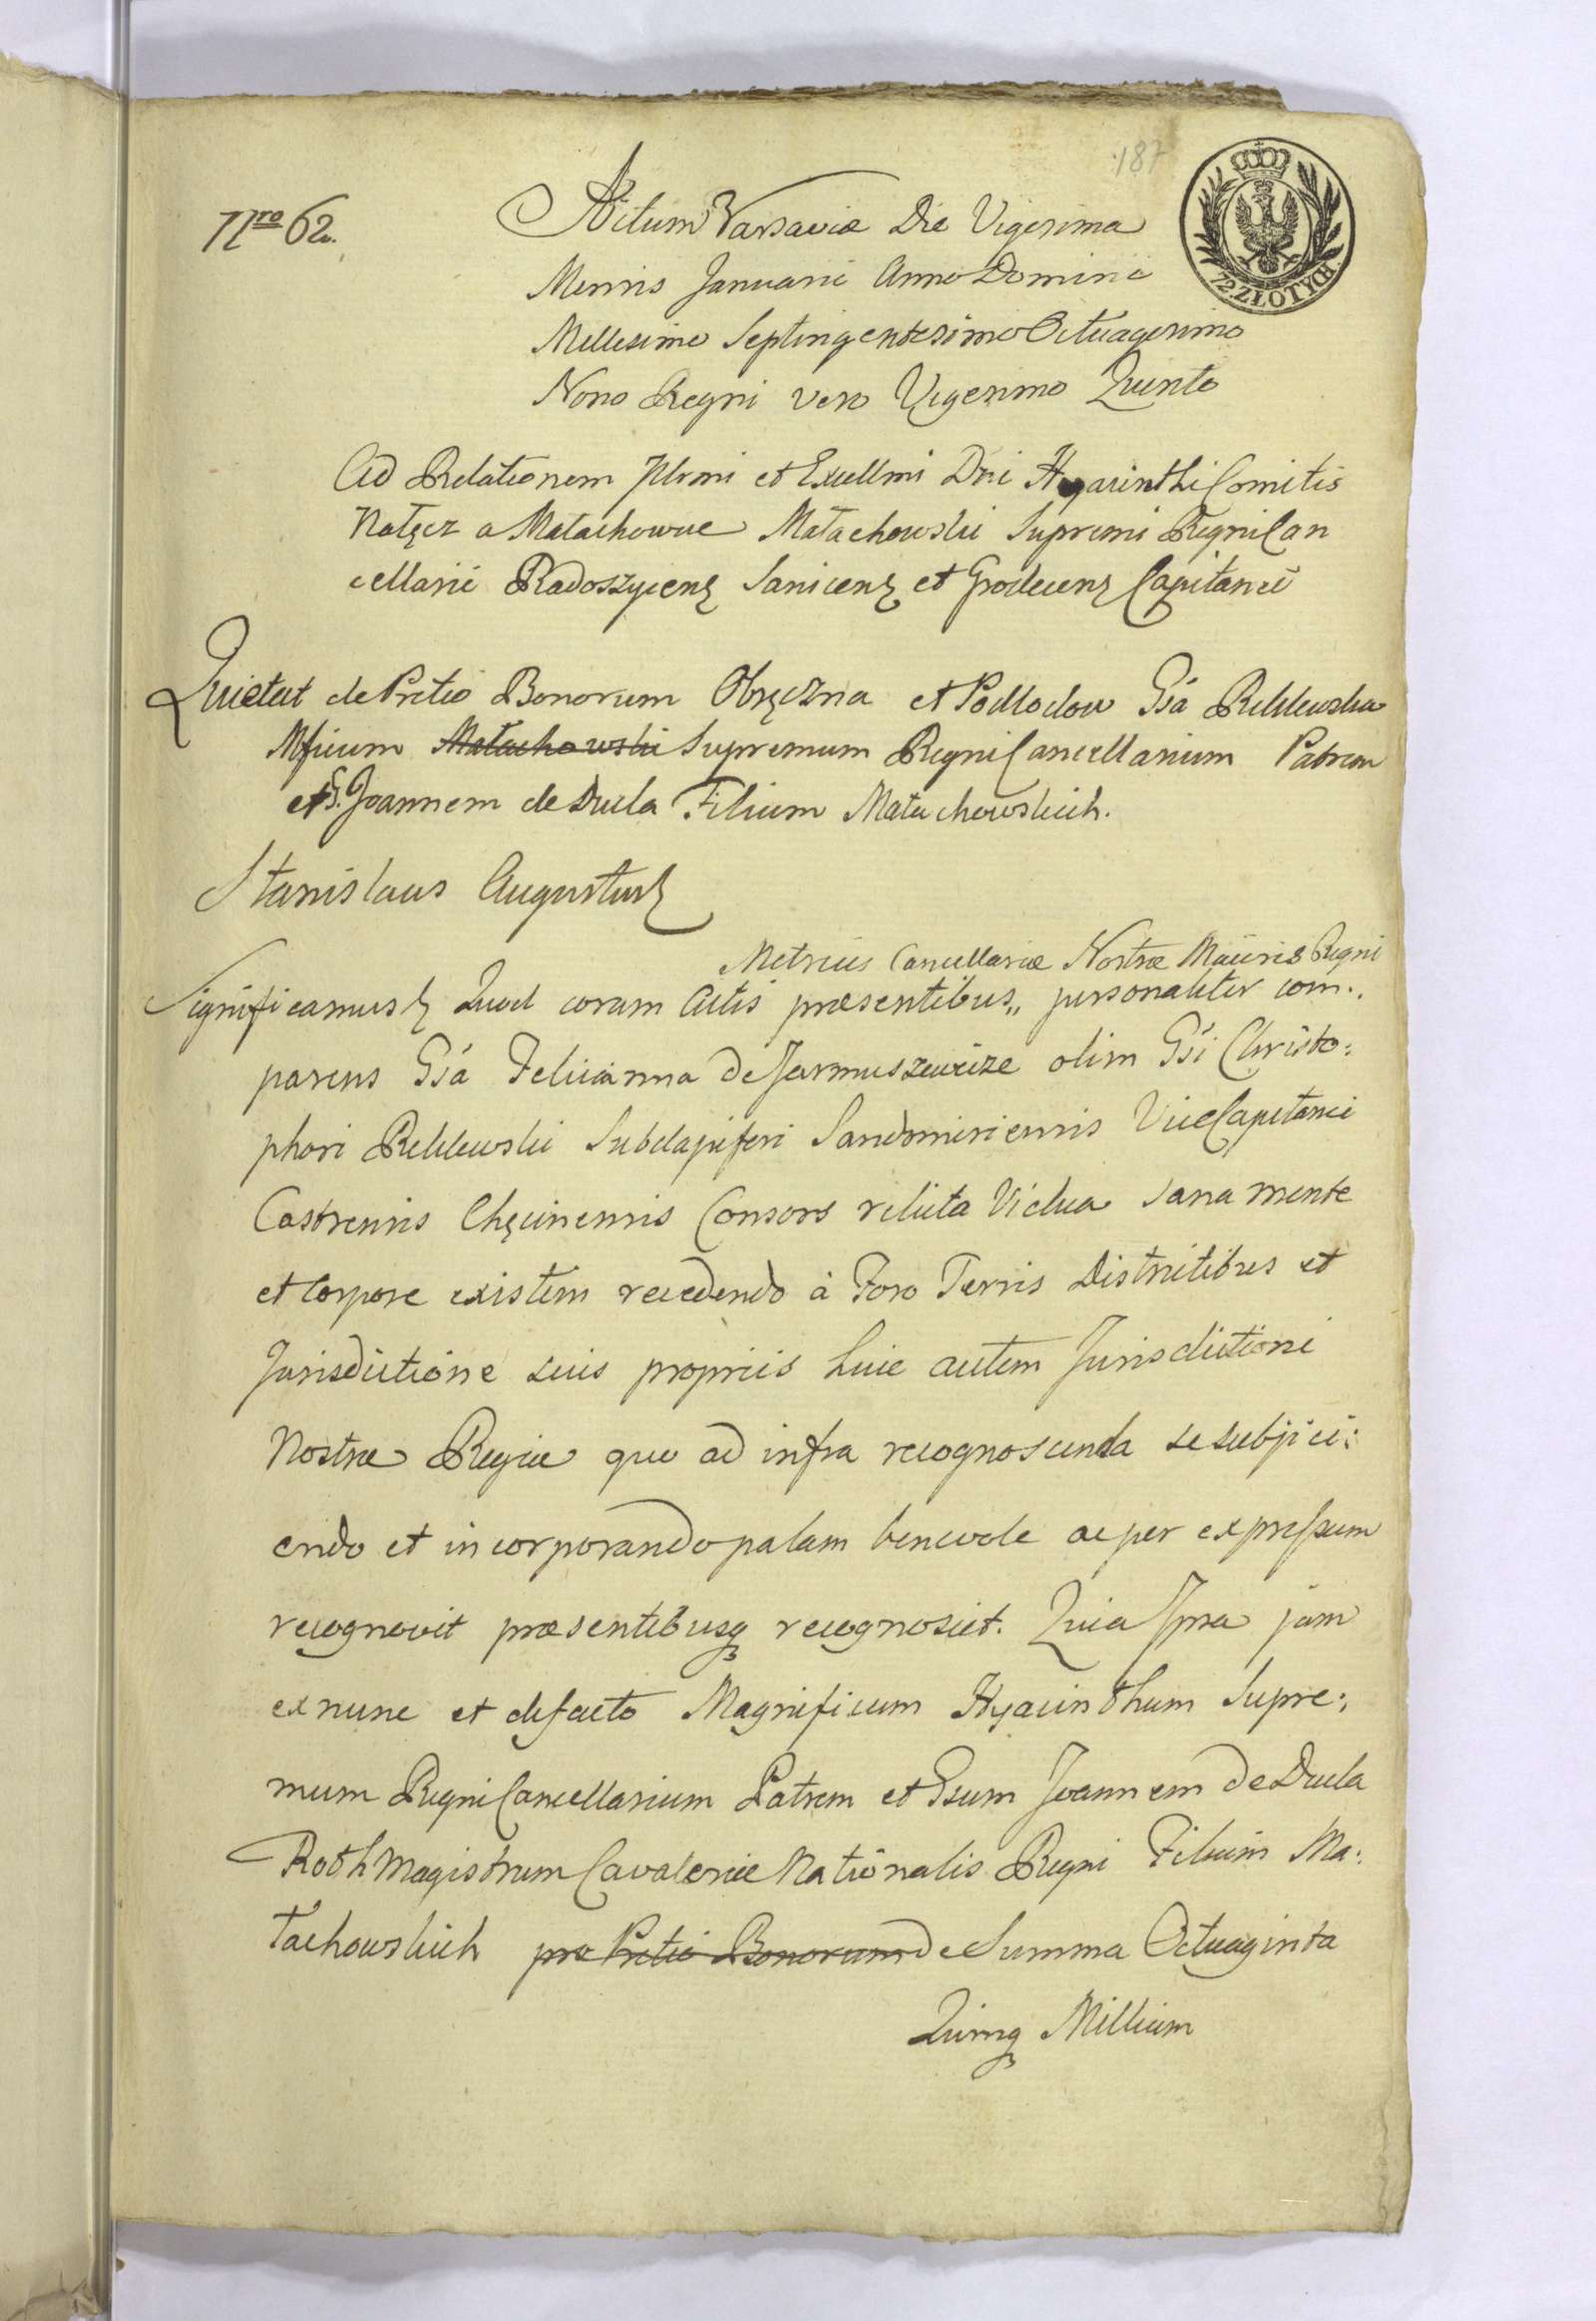 187
72. ZŁOTYCH
Nro 62.
Actum Varsaviæ Die Vigesima
Mensis Januarii Anno Domini
Millesimo Septingentesimo Octuagesimo
Nono Regni vero Vigesimo Quinto
Ad Relationem Illmi et Excellmi Dni Hyacinthi Comitis
Nałęcz a Małachowice Małachowski Supremi Regni Can
cellarii Radoszycens Sanicens et Grodecens Capitanei
Quietat de Pretio Bonorum Obręczna et Podlodow Gsa Reklewska
Mficum Małachowski Supremum Regni Cancellarium Patrem
et G. Joannem de Dukla Filium Małachowskich.
Stanislaus Augustus
Metrices Cancellariæ Nostræ Maioris Regni
Significamus Quod coram Actis præsentibus,, personaliter com:
parens Gsa Felicianna de Jarmuszewicze olim Gsi Christo:
phori Reklewski Subdapiferi Sandomiriensis ViceCapitanei
Castrensis Chęcinensis Consors relicta Vidua sana mente
et Corpore existens recedendo à Foro Terris Districtibus et
Jurisdictione suis propriis huic autem Jurisdictioni
Nostræ Regiæ quo ad infra recognoscenda se subjici:
endo et incorporando palam benevole ac per expressum
recognovit præsentibusq recognoscit. Quia Ipsa jam
ex nunc et de facto Magnificum Hyacinthum Supre:
mum Regni Cancellarium Patrem et Gsum Joannem de Dukla
Rothmagistrum Cavaleriæ Nationalis Regni Filium Ma:
łachowskich pro Pretio Bonorum de Summa Octuaginta
Quinq Millium